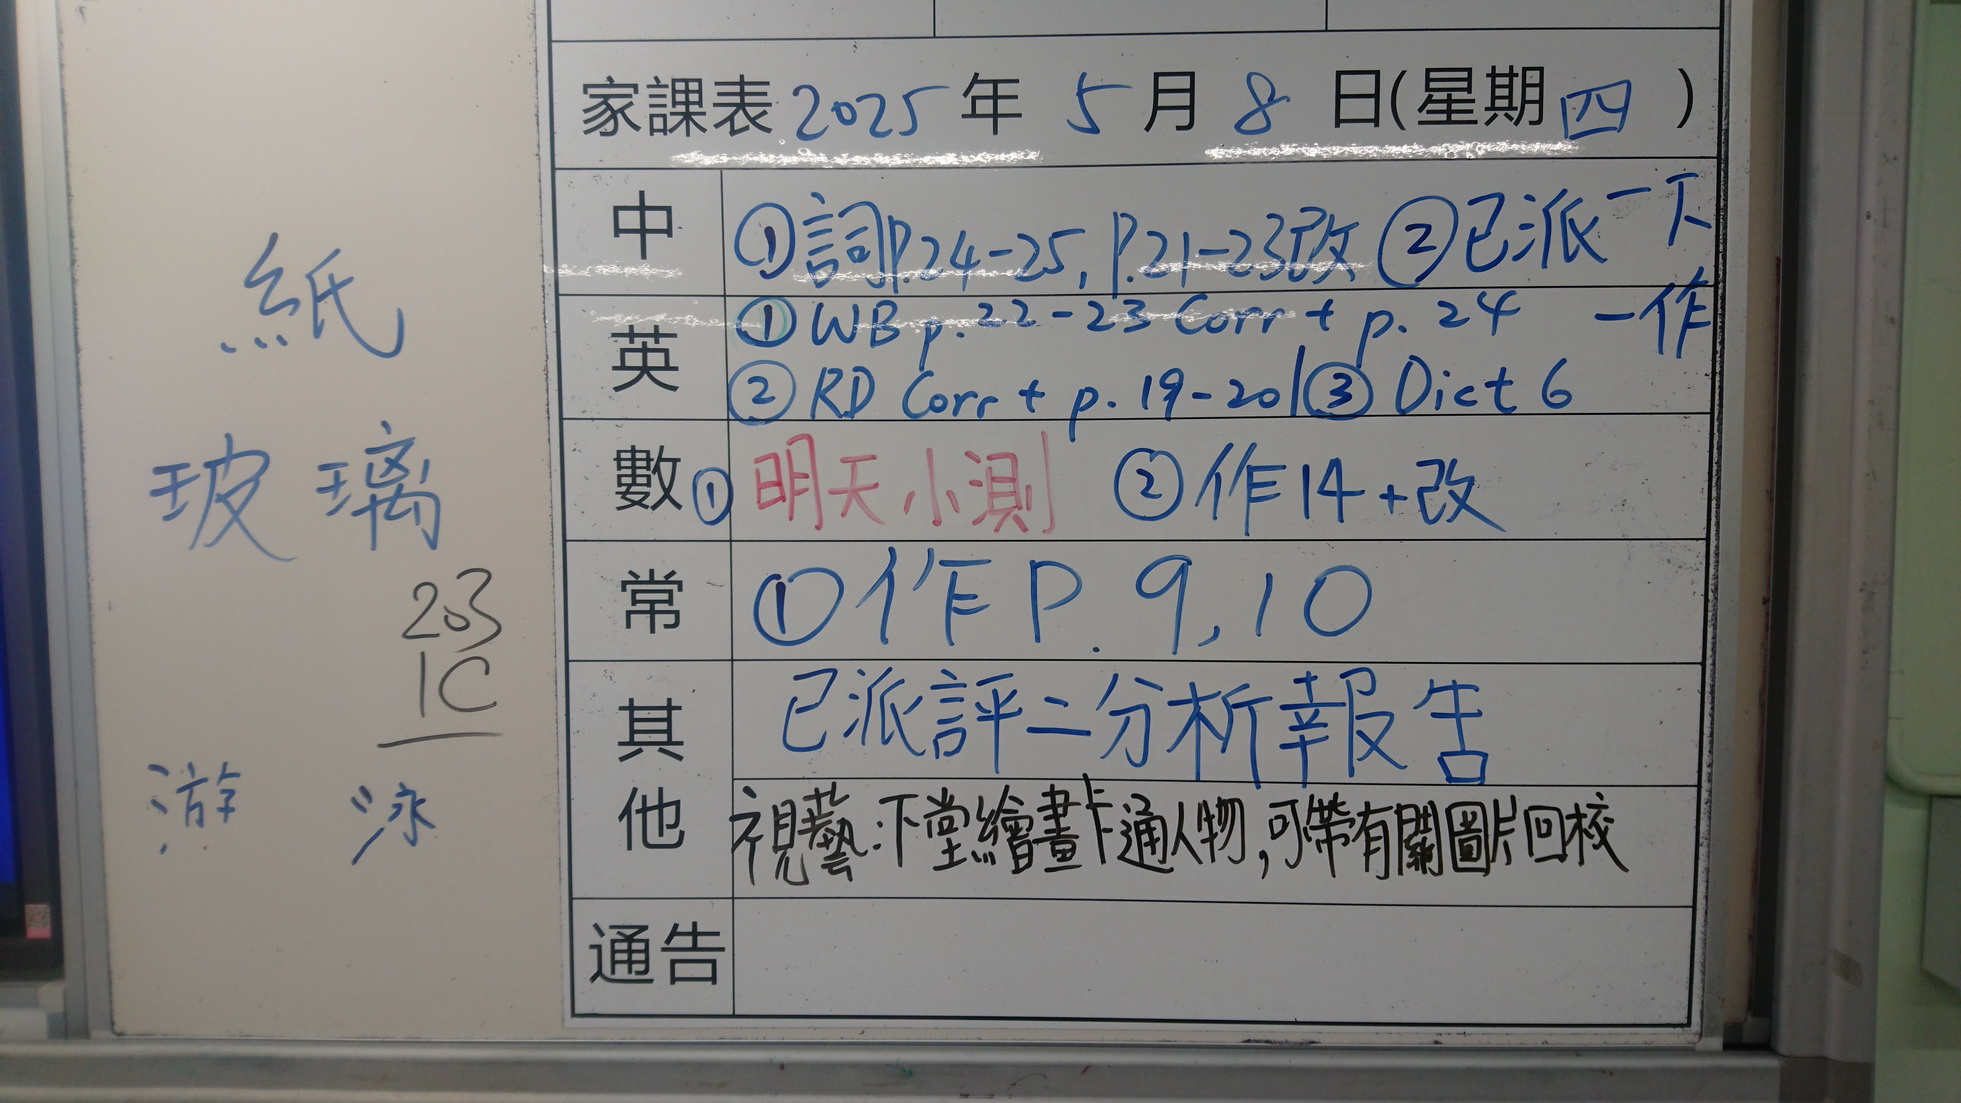 家課表 2025 年 5 月 8 日(星期 四 )
中 ①詞P.24-25, P.21-23改 ②已派一下
一作
英 ① WB p.22-23 Corr + p. 24
② RD Corr + p. 19-20 | ③ Dict 6
數 ① 明天小測 ② 作14+改
常 ①作P. 9, 10
其他 已派評二分析報告
視藝:下堂繪畫卡通人物,可帶有關圖片回校
通告
紙
玻璃
203
1C
游泳